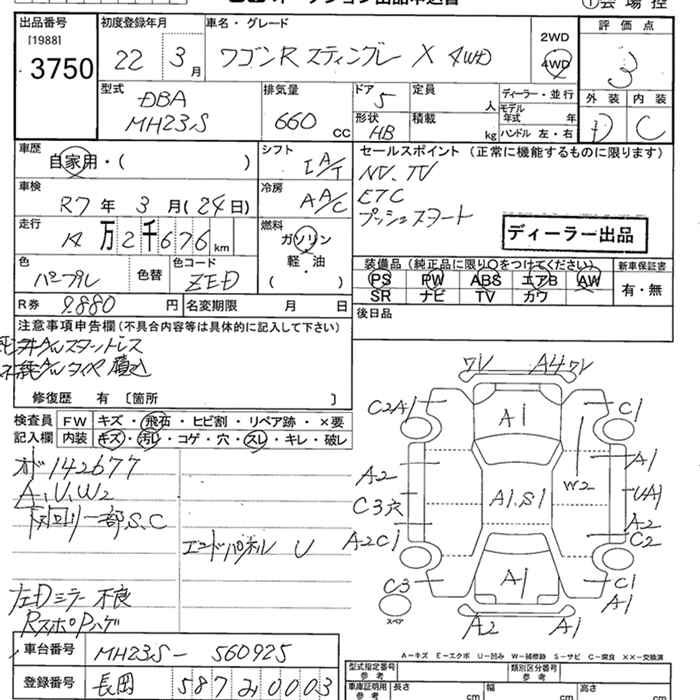 出品番号 初度登録年月 車名・グレード 評価点
[1988]
3750
22年 3月
ワゴンR スティングレー X 4WD
2WD
4WD
3
外装 内装
D C
型式 排気量 ドア 定員 ディーラー・並行
DBA
MH23S
660 CC
5
人
モデル年式 年
形状 積載
HB
kg ハンドル 左・右
車歴
自家用・( )
シフト
I A/T
セールスポイント(正常に機能するものに限ります)
NV、TV
ETC
プッシュスタート
車検
R7年 3月(24日)
冷房
A A/C
走行
14万2千676km
燃料
ガソリン
軽・油
( )
ディーラー出品
色 色替 色コード
パープル
ZED
装備品(純正品に限り○をつけてください) 新車保証書
PS PW ABS エアB AW
SR ナビ TV カワ
有・無
R券 9,880円 名変期限 月 日
後日品
注意事項申告欄(不具合内容等は具体的に記入して下さい)
AWスタットレス
AWタイヤ積込
修復歴 有 [箇所 ]
検査員
記入欄
FW キズ・飛石・ヒビ割・リペア跡・×要
内装 キズ・汚レ・コゲ・穴・スレ・キレ・破レ
142677
A、U、W2
下回り一部S、C
エンドパネル U
左Dミラー不良
7V A4 7V
C2A1 A1 C1
A2 A1
C3穴 A1、S1 W2 UA1
A2 A2C1 C2
C3 A1 C1
A1
スペア
A2 A1
A-キズ E-エクボ U-凹み W-補修跡 S-サビ C-腐食 XX-交換済
車台番号 MH23S-560925
型式指定番号 参考 類別区分番号 参考
登録番号 長岡 587 み 0003
車庫証明用 参考 長さ cm 幅 cm 高さ cm